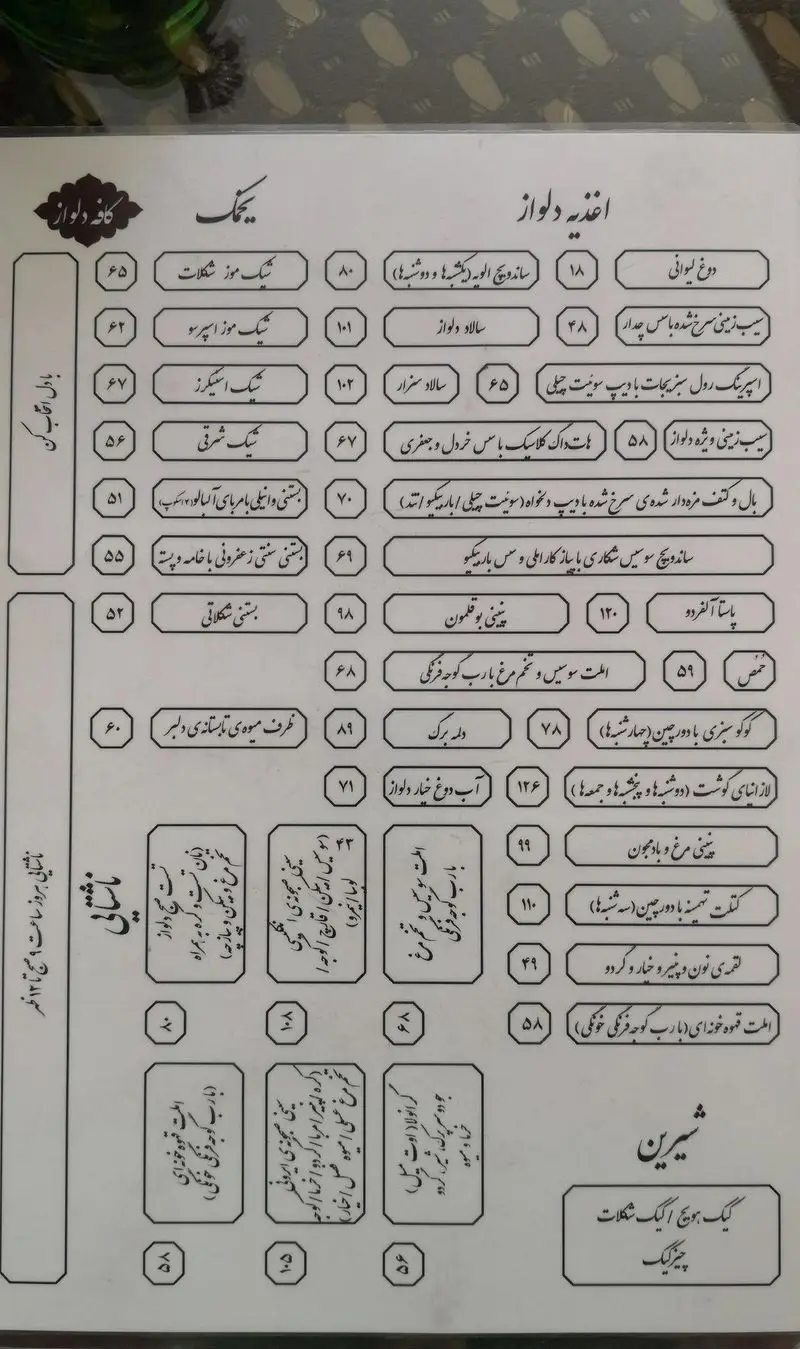 اغذیه دلواز
دوغ لیوانی ۱۸
سیب زمینی سرخ شده با سس چدار ۴۸
اسپرینگ رول سبزیجات با دیپ سوئیت چیلی ۶۵
سیب زمینی ویژه دلواز ۵۸
بال و کتف مزه‌دار شده‌ی سرخ شده با دیپ دلخواه (سوئیت چیلی / باربیکیو / تند) ۷۰
ساندویچ سوسیس شکاری با پیاز کاراملی و سس باربیکیو ۶۹
پاستا آلفردو ۱۲۰
حُمُص ۵۹
کوکو سبزی با دورچین (چهارشنبه‌ها) ۷۸
لازانیای گوشت (دوشنبه‌ها و پنجشنبه‌ها و جمعه‌ها) ۱۲۶
پنینی مرغ و بادمجون ۹۹
کتلت تهمینه با دورچین (سه شنبه‌ها) ۱۱۰
لقمه‌ی نون و پنیر و خیار و گردو ۴۹
املت قهوه خونه‌ای (با رب گوجه فرنگی خونگی) ۵۸
ساندویچ الویه (یکشبه‌ها و دوشنبه‌ها) ۸۰
سالاد دلواز ۱۰۱
سالاد سزار ۱۰۲
هات داگ کلاسیک با سس خردل و جعفری ۶۷
پنینی بوقلمون ۹۸
املت سوسیس و تخم مرغ با رب گوجه فرنگی ۶۸
دلمه برگ ۸۹
آب دوغ خیار دلواز ۷۱
شیرین
کیک هویج / کیک شکلات
چیزکیک
یخمک
شیک موز شکلات ۶۵
شیک موز اسپرسو ۶۲
شیک اسنیکرز ۶۷
شیک شرقی ۵۶
بستنی وانیلی با مربای آلبالو (۲ اسکوپ) ۵۱
بستنی سنتی زعفرونی با خامه و پسته ۵۵
بستنی شکلاتی ۵۲
ظرف میوه‌ی تابستانه‌ی دلبر ۶۰
کافه دلواز
با دل انتخاب کن
ناشتایی
تست صبح دلواز
(نان تست و کره به همراه
تخم مرغ و بیکن و پیازچه)
۸۰
سینی صبحونه‌ی انگلیسی
(سوسیس / بیکن / قارچ / گوجه /
لوبیا / نیمرو)
۴۳
۱۰۸
املت سوسیس و تخم مرغ
با رب گوجه فرنگی
۶۸
املت قهوه خونه‌ای
(با رب گوجه فرنگی خونگی)
۵۸
سینی صبحونه‌ی ایرونی
(کره / پنیر / مربا / گردو / خرما / گوجه
تخم مرغ عسلی / میوه فصل / خیار)
۱۰۵
گرانولا (اوت میل)
جو دو سر پرک، شیر، گردو
خرما و میوه
۵۶
ناشتایی هر روز ساعت ۹ صبح تا ۱۲ ظهر